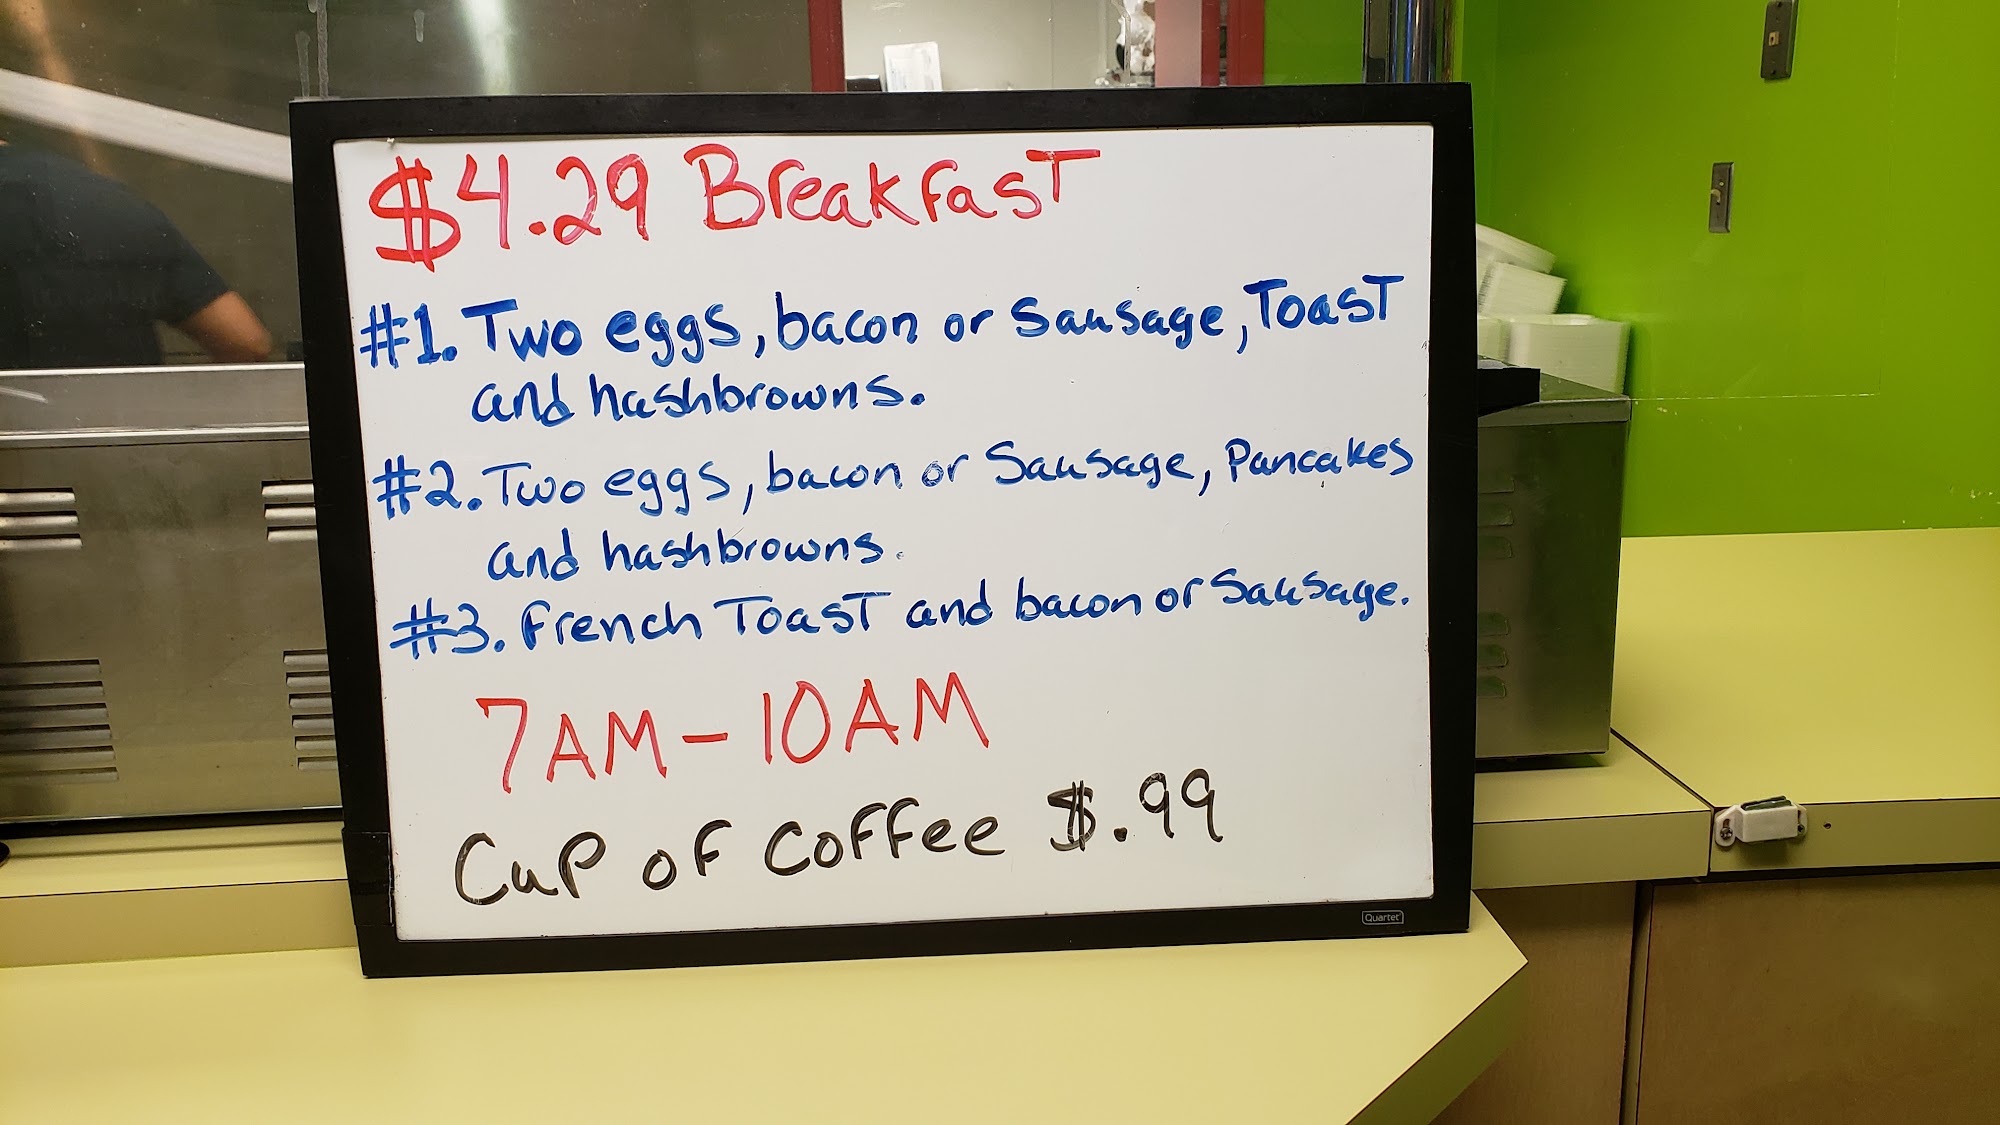 $4.29 Breakfast
#1. Two eggs, bacon or Sausage, Toast
and hashbrowns.
#2. Two eggs, bacon or Sausage, Pancakes
and hashbrowns.
#3. French Toast and bacon or Sausage.
7AM-10AM
Cup of Coffee $.99
Quartet